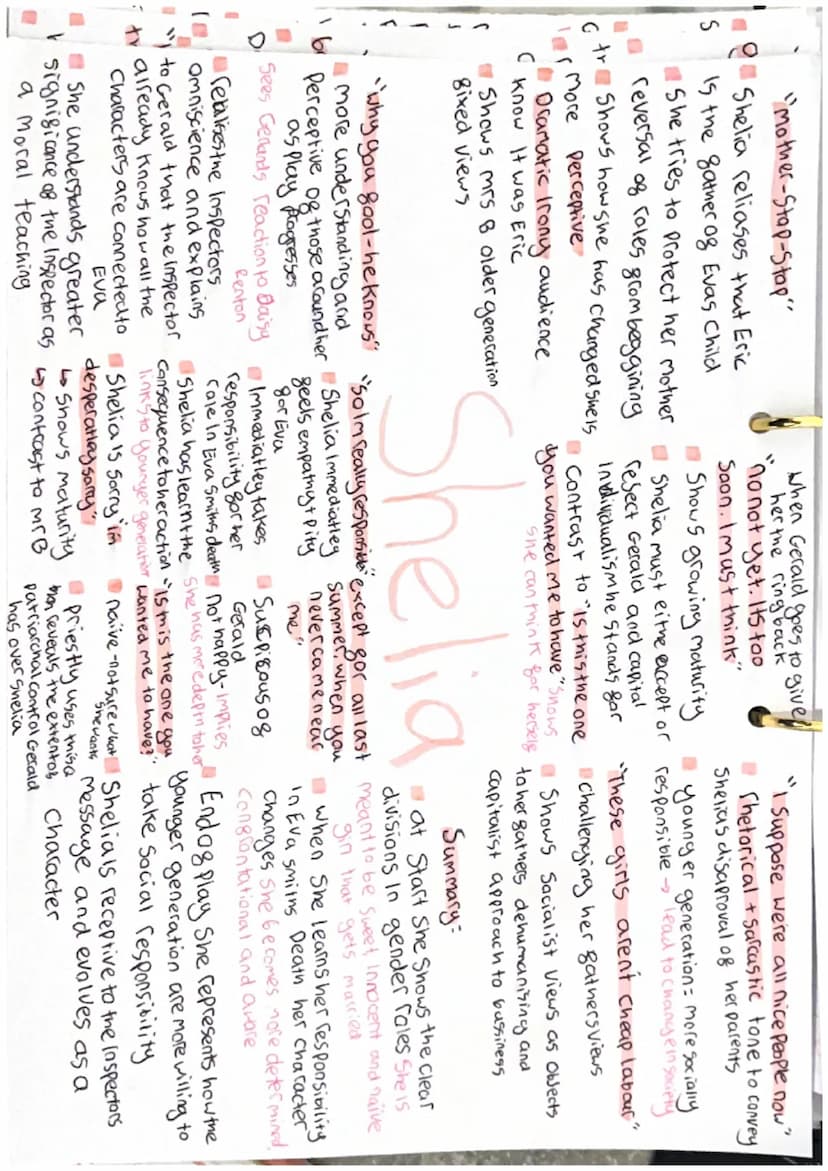 "Mother-Stop-Stop"
Shelia reliases that Eric
Is the father of Evas Child
She tries to Protect her mother
reversal of roles from beggining
Shows how she has changed she is
more perceptive
Dramatic Irony audience
know It was Eric
Shows mrs B older generation
fixed views
When Gerald goes to give
her the ring back
"no not yet. Its too
soon. I must think"
Shows growing maturity
Shelia must either except or
reject Gerald and capital
Individualism he stands for
Contrast to "Is this the one
you wanted me to have" shows
she can think for herself
"I Suppose we're all nice people now"
Rhetorical + sarcastic tone to convey
Shelias disaproval of her parents
younger generation = more socially
responsible → lead to change in society
"These girls arent cheap labour"
challenging her fathers views
Shows Socialist views as objects
to her fathers dehumanizing and
capitalist approach to bussiness
Shelia
"why you fool - he knows"
more understanding and
perceptive of those around her
as play progresses
sees Geralds reaction to Daisy
Renton
realises the Inspectors
omniscience and explains
to Gerald that the Inspector
already knows how all the
Characters are connected to
Eva
She understands greater
significance of the Inspector as
a moral teaching
"So Im really responsible"
Shelia Immediatley
feels empathy + pity
for Eva
Immediatley takes
responsibility for her
role In Eva Smiths death
Shelia has learnt the
consequence to her action
links to younger generation
Shelia Is sorry "im
desperatley sorry"
↳ Shows maturity
↳ contrast to mr B
"except for all last
summer, when you
never came near
me"
Suspisous of
Gerald
Not happy - Implies
She has more depth to her
"Is this the one you
wanted me to have?"
naïve - not sure what
she wants
priestly uses this a
then reveals the extent of
patriarchal control Gerald
has over shelia
Summary:
at Start She Shows the clear
divisions In gender roles She Is
meant to be Sweet Innocent and naïve
girl that gets married
when She learns her responsibility
In Eva Smiths Death her character
changes She becomes more determined,
confrontational and aware
End of play She represents how the
younger generation are more willing to
take Social responsibility
Shelia Is receptive to the Inspectors
message and evolves as a
Character